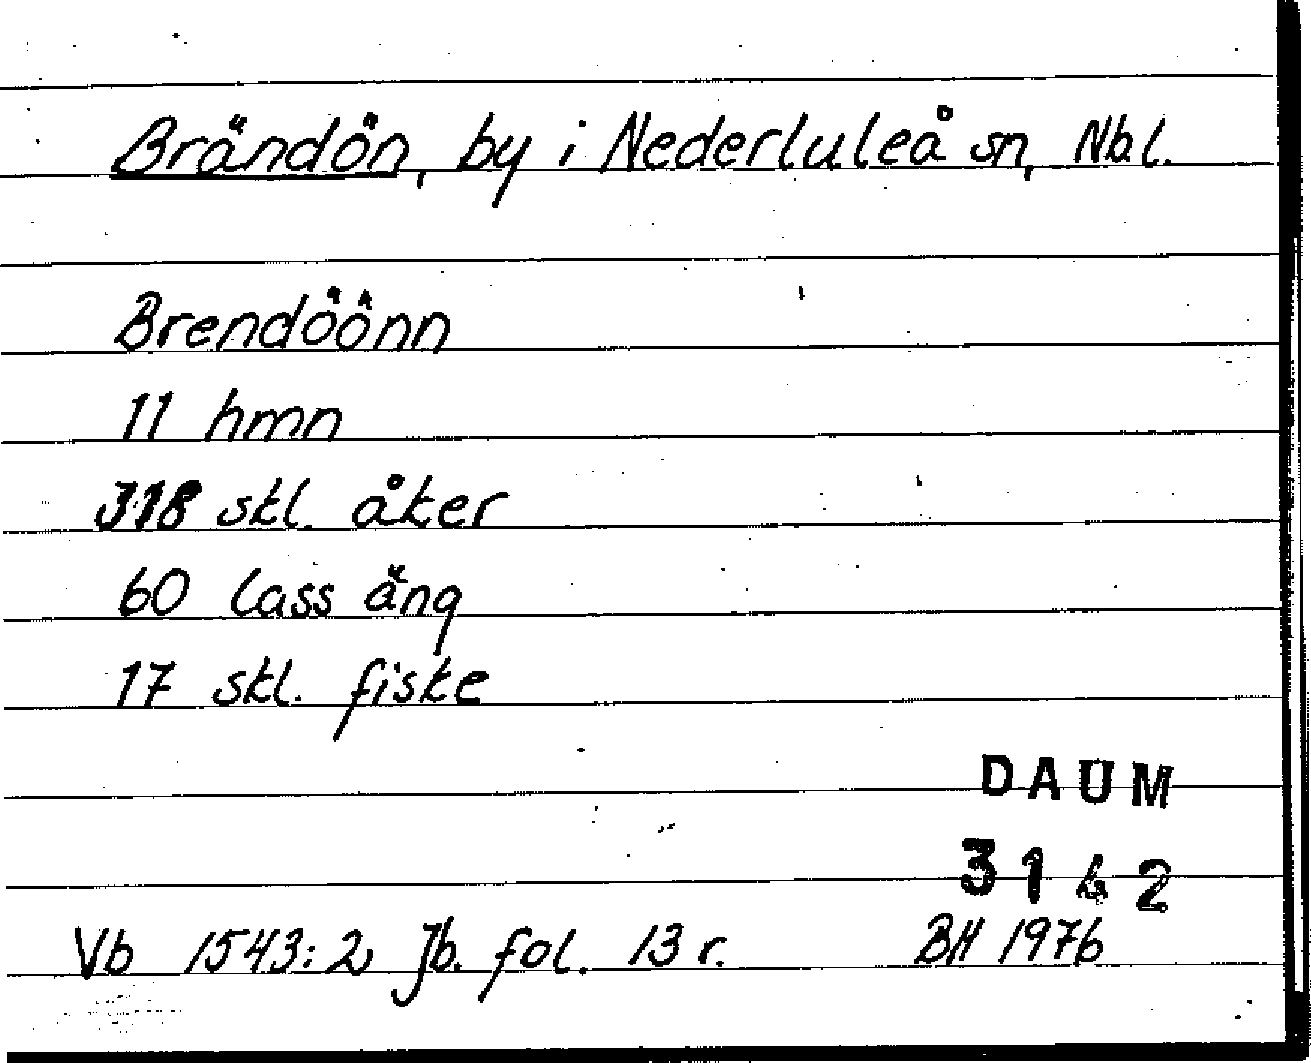 Brändön, by i Nederluleå sn, Nbl.
Brendöönn
11 hmn
318 skl. åker
60 lass äng
17 skl. fiske
DAUM
3142
Vb 1543:2 Jb. fol. 13 r. BH 1976